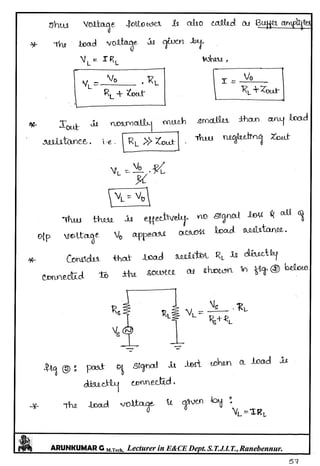 Thus Voltage follower is also called as Buffer amplifier
* The load voltage is given by
V_L = I R_L where,
V_L = V_o / (R_L + Z_out) . R_L I = V_o / (R_L + Z_out)
* I_out is normally much smaller than any load
resistance. i.e. R_L >> Z_out . Thus neglecting Z_out
V_L = V_o / R_L . R_L
V_L = V_o
Thus there is effectively no signal loss & all of
o/p voltage V_o appears across load resistance.
* Consider that load resistor R_L is directly
connected to the source as shown in fig ⓓ below.
R_S R_L V_L = V_S / (R_S + R_L) . R_L
V_S
fig ⓓ : part of signal is lost when a load is
directly connected.
* The load voltage is given by :
V_L = I R_L
ARUNKUMAR G M.Tech, Lecturer in E&CE Dept. S.T.J.I.T., Ranebennur.
57